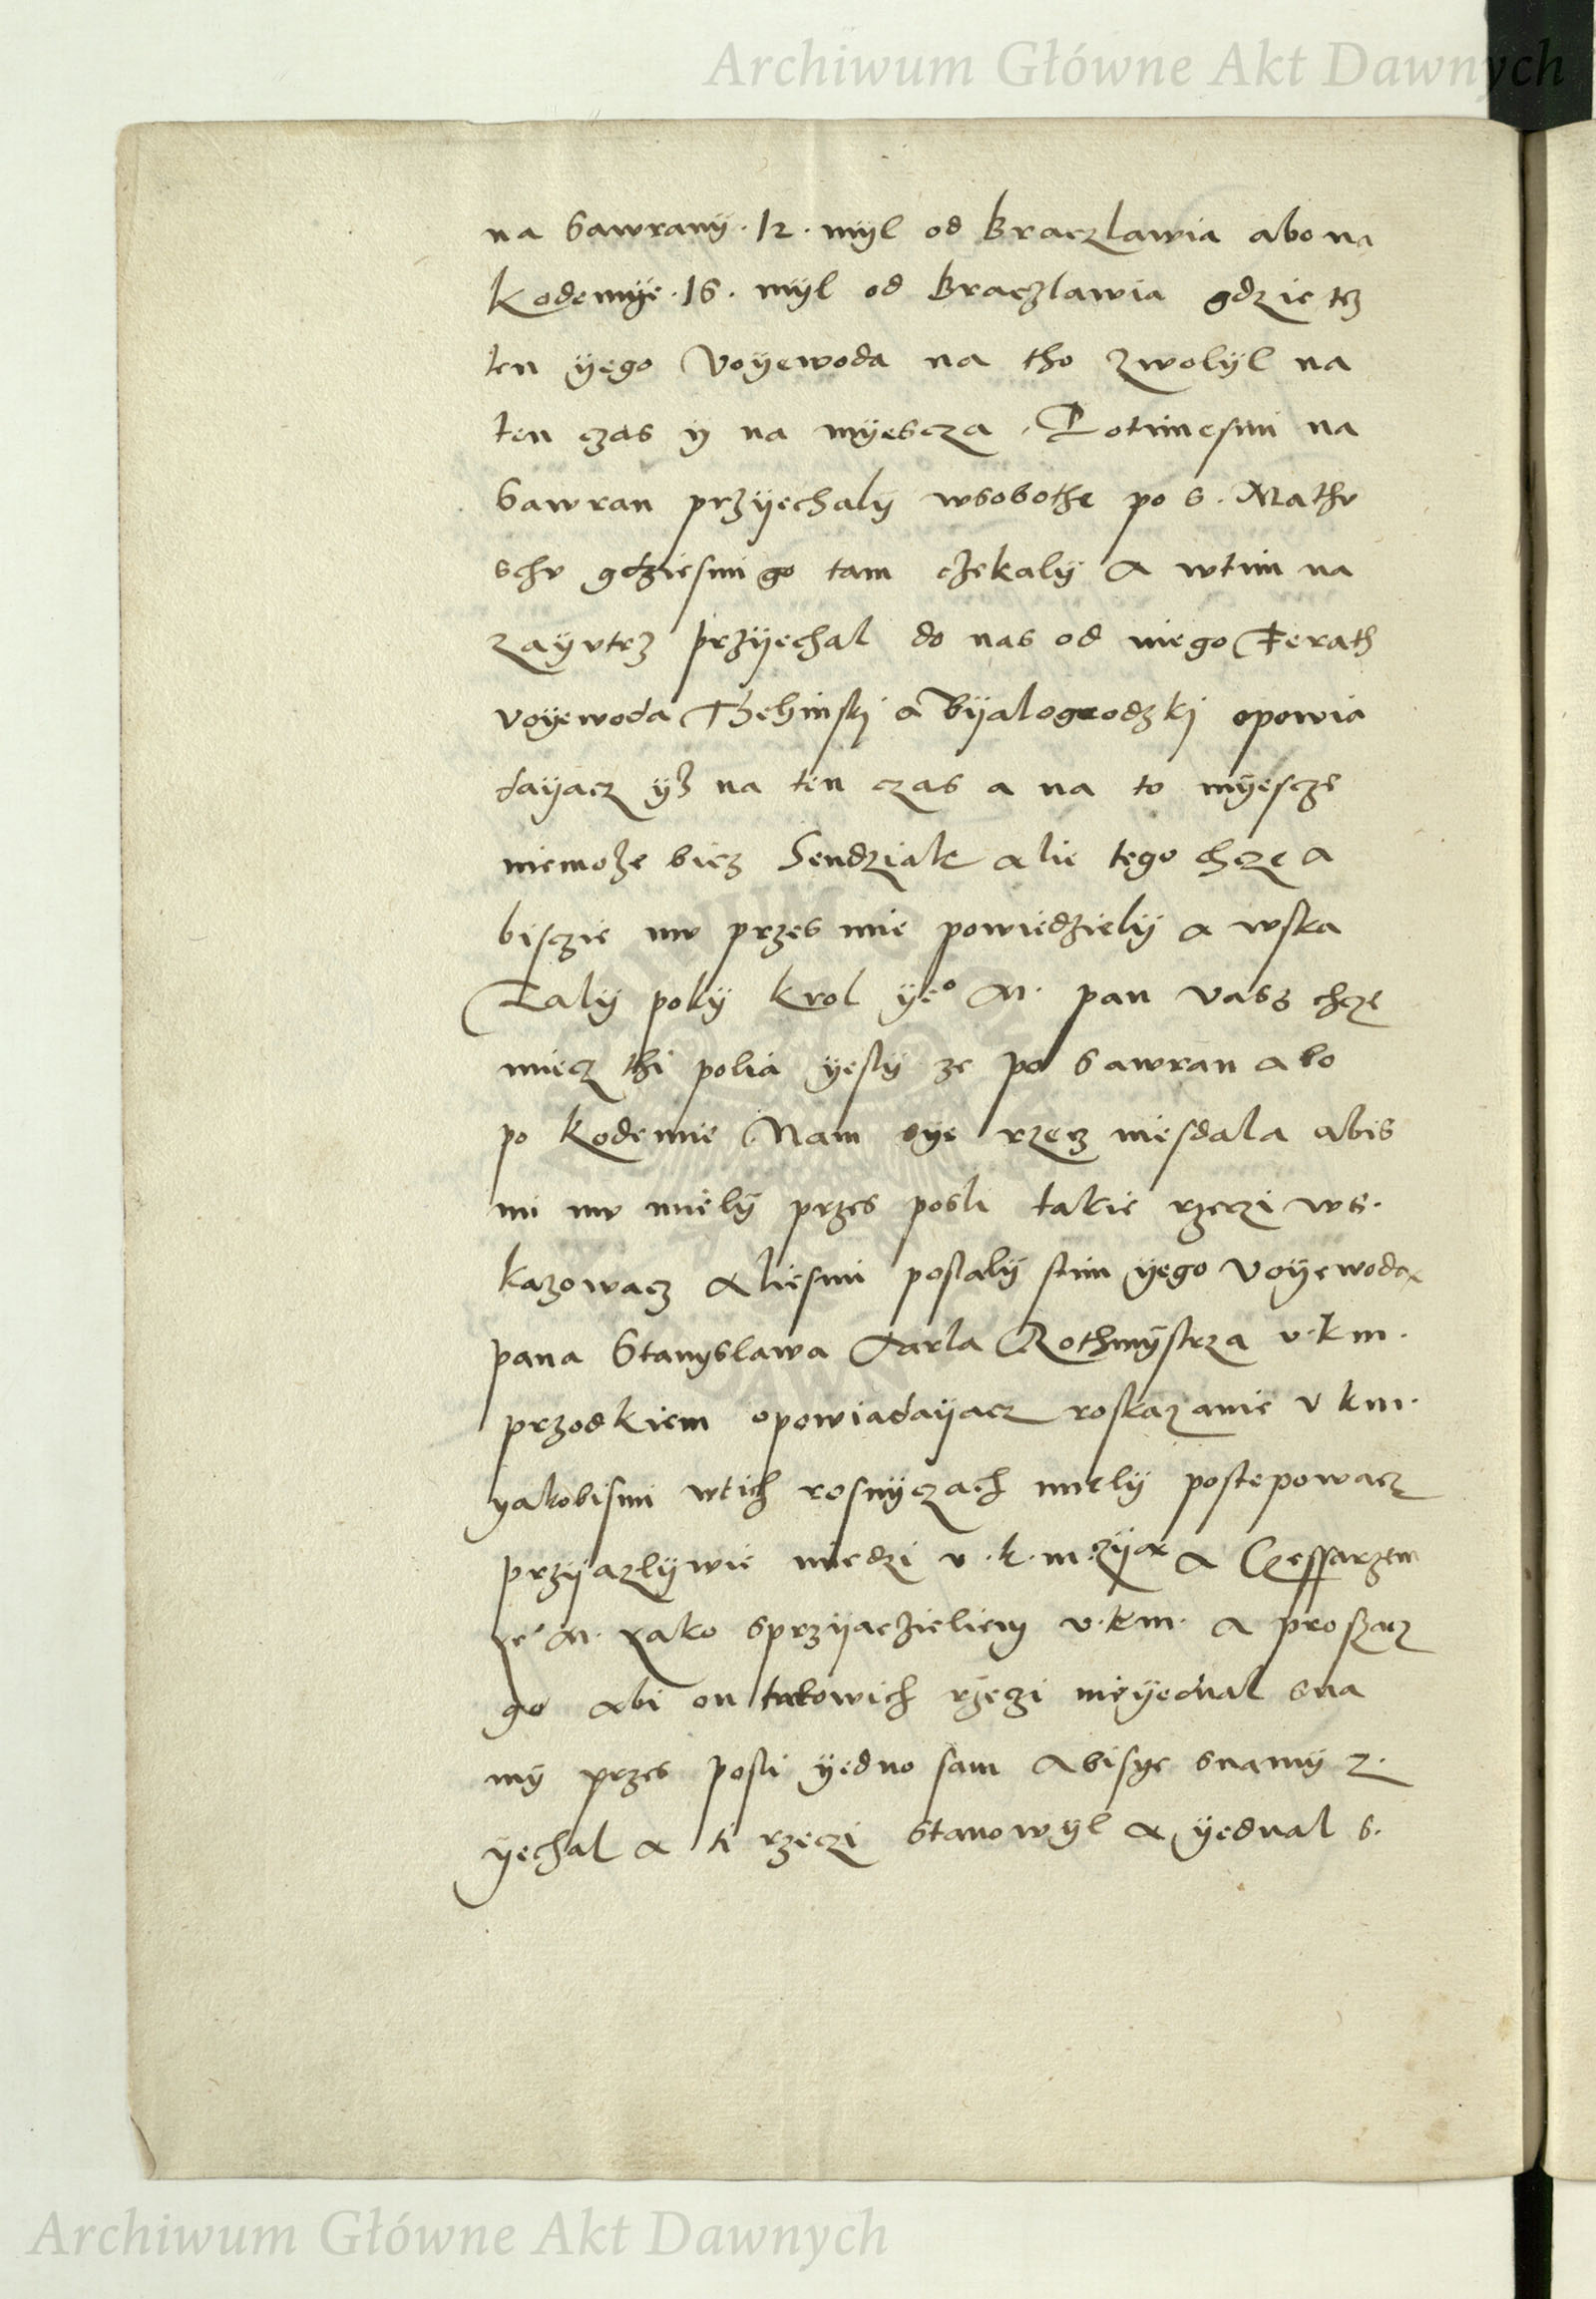 Archiwum Główne Akt Dawnych
na Sawrany . 12 . myl od Braczlawia abo na
Kodemye . 16 . myl od Braczlawia gdzie tez
ten yego Voyewoda na tho zwolyl na
ten czas y na myescza . Potimesmi na
Sawran przyechaly wsobothe po S . Mathv
schv gdziesmi go tam czekaly a wtim na
zayvtrz przyechal do nas od niego Ferath
voyewoda Thehinski a Byalogrodzki opowia
dayacz yz na ten czas a na to myescze
niemoze bicz Sendziak alie tego chcze a
bisczie mv przes mie powiedziely a wska
zaly poky krol yeº M. pan vass chcze
miecz thi polia yesly ze po Sawran abo
po Kodemie Nam sye rzecz niesdala abis
mi mv miely przes posli takie rzeczi ws.
kazowacz aliesmi poslaly stim yego voyewoda
pana Stanyslawa Karla Rothmystrza v.k.m.
przodkiem opowiadayacz roskazanie v k m.
yakobismi wtich rosnyczach miely postepowacz
przyazlywie miedzi v . k . m czya a Czessarzem
yeº M. yako sprzyaczieliem v.k.m. a proszacz
go abi on takowich rzeczi nieyednal sna
my przes posli yedno sam abisye snamy z.
yechal a ti rzeczi stanowyl a yednal s.
Archiwum Główne Akt Dawnych